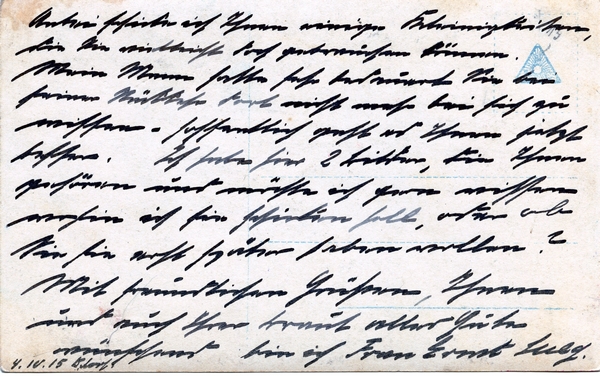 Anbei schicke ich Ihnen einige Kleinigkeiten,
die Sie vielleicht doch gebrauchen können.
Mein Mann hatte sehr bedauert Sie bei
seiner Rückkehr dort nicht mehr bei sich zu
wissen. Hoffentlich geht es Ihnen jetzt
besser. Ich habe hier 2 Bilder, die Ihnen
gehören und möchte ich gern wissen
wohin ich sie schicken soll, oder ob
Sie sie erst später haben wollen?
Mit freundlichen Grüßen, Ihnen
und auch Ihrer Braut alles Gute
wünschend bin ich Frau Ernst
4.IV.15